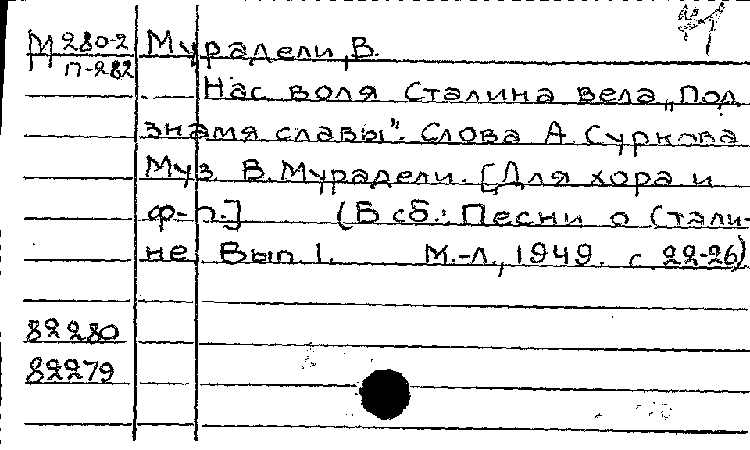 М 280-2 Мурадели, В.
П-282
Нас воля Сталина вела „Под
знамя славы". Слова А. Суркова
Муз В. Мурадели. [Для хора и
ф-п.] (В сб.: Песни о Стали-
не Вып 1. М.-Л., 1949. с 22-26)
82280
82279